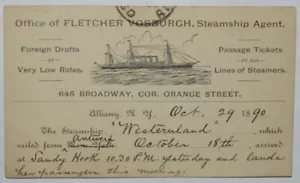 Office of FLETCHER VOSBURGH, Steamship Agent.
Foreign Drafts
AT
Very Low Rates.
Passage Tickets
ON ALL
Lines of Steamers.
645 BROADWAY, COR. ORANGE STREET.
Albany, N. Y. Oct. 29 1890
The Steamship "Westernland", which
Antwerp
sailed from October 18th arrived
at Sandy Hook 10.30 P.M. yesterday and lands
her passengers this morning.